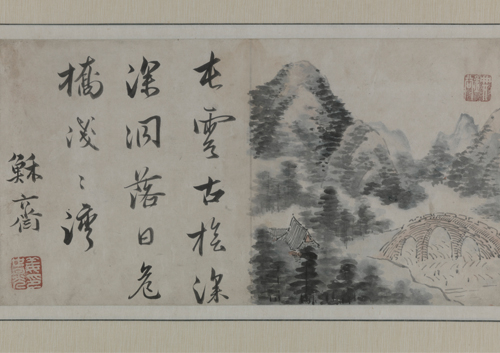 屯雲古檜深
深洞落日危
橋淺〻灣
穌齋